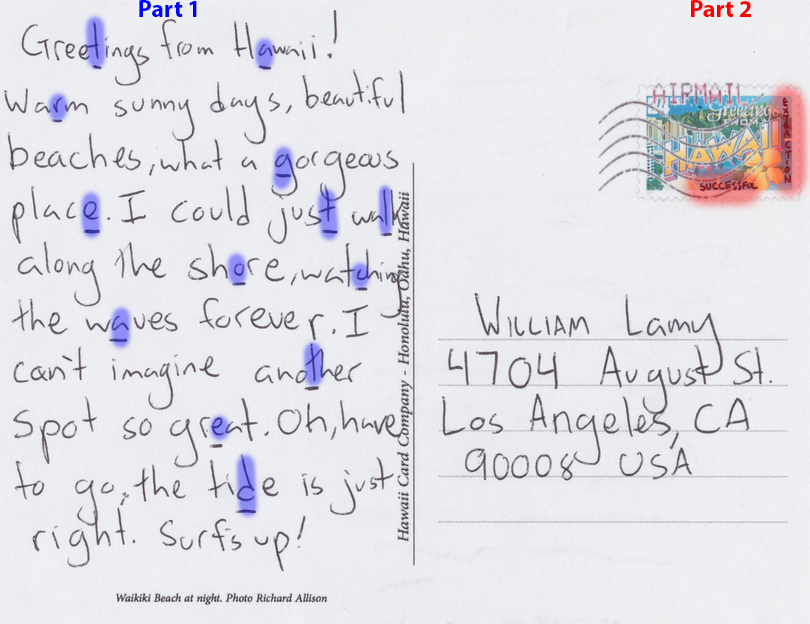 Part 1
Part 2
Greetings from Hawaii!
Warm sunny days, beautiful
beaches, what a gorgeous
place. I could just walk
along the shore, watching
the waves forever. I
can't imagine another
spot so great. Oh, have
to go, the tide is just
right. Surf's up!
Waikiki Beach at night. Photo Richard Allison
Hawaii Card Company - Honolulu, Oahu, Hawaii
AIRMAIL
Greetings
FROM
HAWAII
SUCCESSFUL
EXTRACTION
William Lamy
4704 August St.
Los Angeles, CA
90008 USA